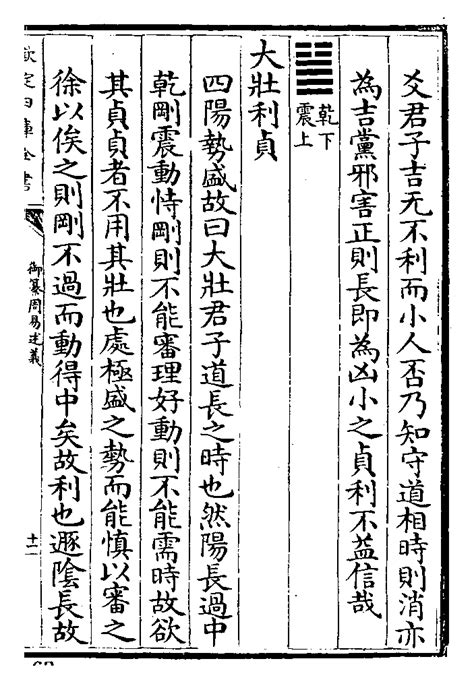 爻君子吉无不利而小人否乃知守道相時則消亦
為吉黨邪害正則長即為凶小之貞利不益信哉
乾下
震上
大壯利貞
四陽勢盛故曰大壯君子道長之時也然陽長過中
乾剛震動恃剛則不能審理好動則不能需時故欲
其貞貞者不用其壯也處極盛之勢而能慎以審之
徐以俟之則剛不過而動得中矣故利也遯陰長故
欽定四庫全書
御纂周易述義
十二